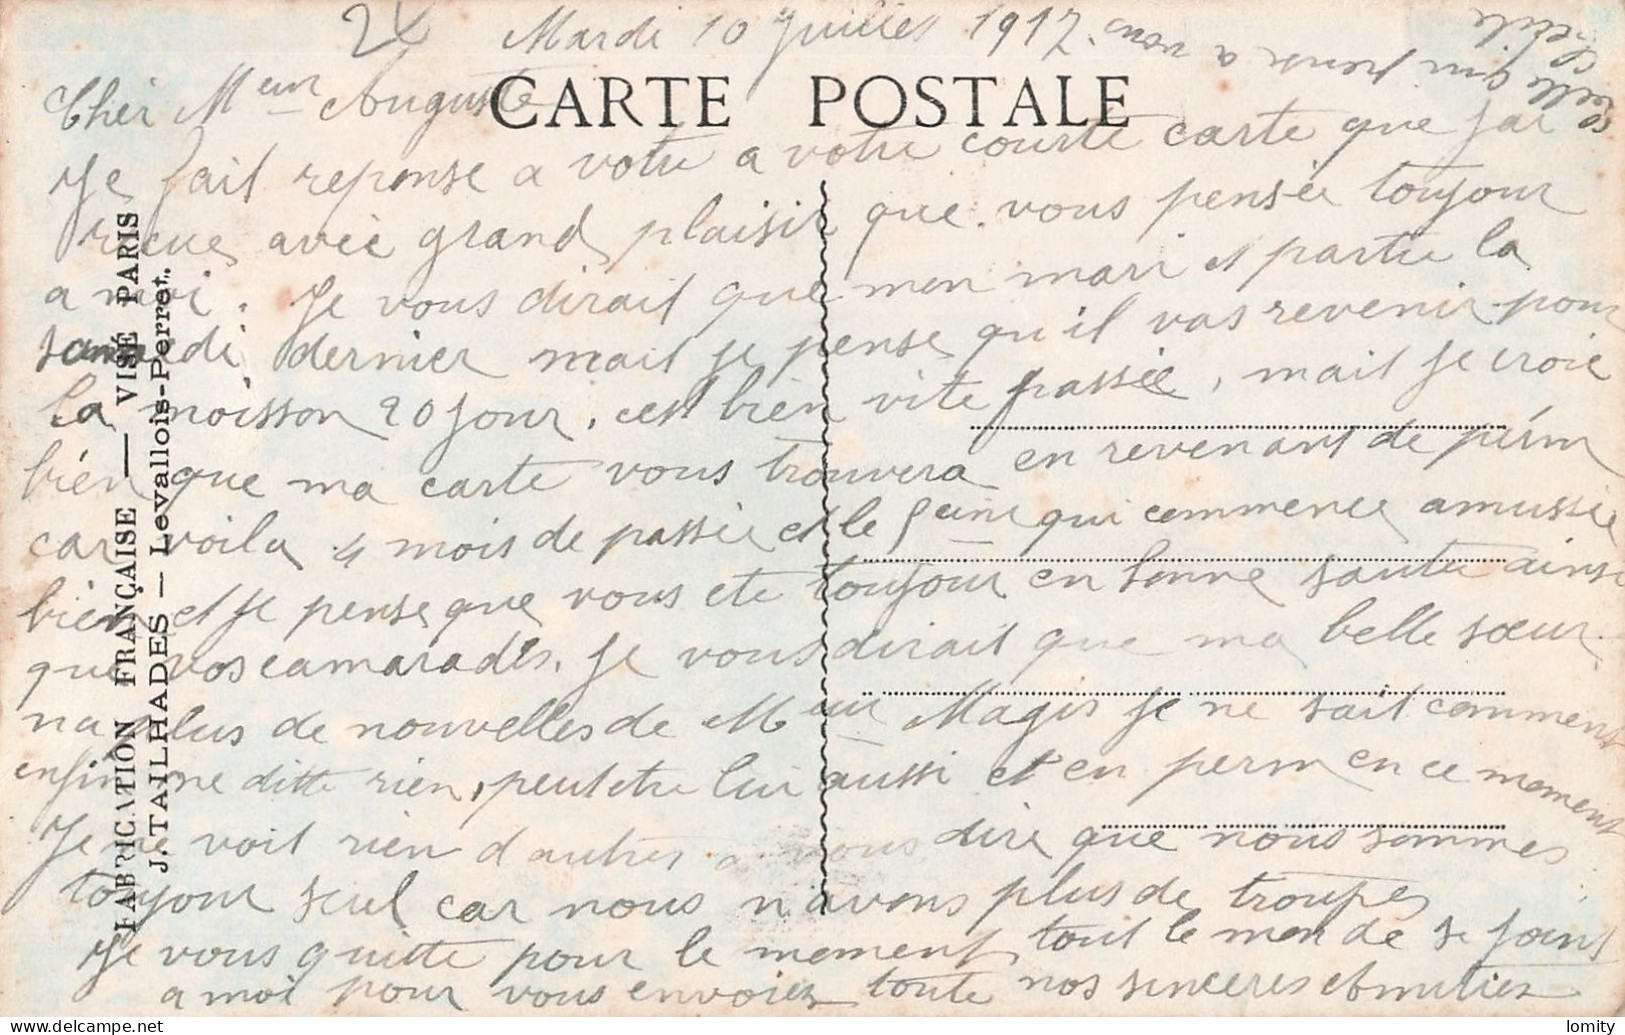 24
Mardi 10 Juillet 1917.
CARTE POSTALE
Cher Meur Auguste
Je fait reponse a votre a votre courte carte que jai
recue avec grand plaisir que vous pensée toujour
a moi. Je vous dirait que mon mari et partie la
samedi dernier mait je pense qu'il vas revenir pour
la moisson 20 jour. cest bien vite passée, mait je croie
bien que ma carte vous trouvera en revenant de perm
car voila 4 mois de passée et le qui commence amussée
bien et je pense que vous ete toujour en bonne santée ainsi
que vos camarades. Je vous dirait que ma belle sœur
na plus de nouvelles de Meur Magis je ne sait comment
enfin ne ditte rien, peutetre lui aussi et en perm en ce moment
Je ne voit rien d'autres a vous dire que nous sommes
toujour seul car nous n'avons plus de troupes
Je vous quitte pour le moment tout le monde se joint
a moi pour vous envoiez toute nos sinceres Amitiez
celle qui pense a vous.
FABRICATION FRANÇAISE — VISÉ PARIS
J. TAILHADES — Levallois-Perret.
lomity
delcampe.net